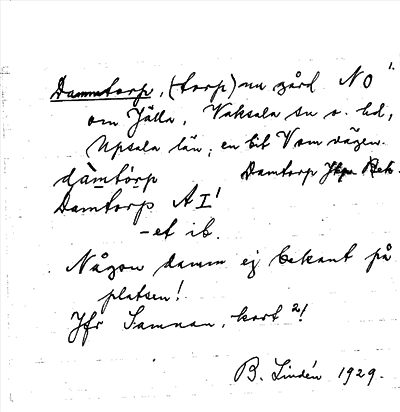 Dammtorp, (torp) nu gård NO 1.
om Jälla, Vaksala sn o. hd,
Upsala län; en bit V om vägen.
dàmtórp Damtorp
Damtorp AI1
-et ib.
Någon damm ej bekant på
platsen!
Jfr Samnan, kort 2!
B. Lindén 1929.